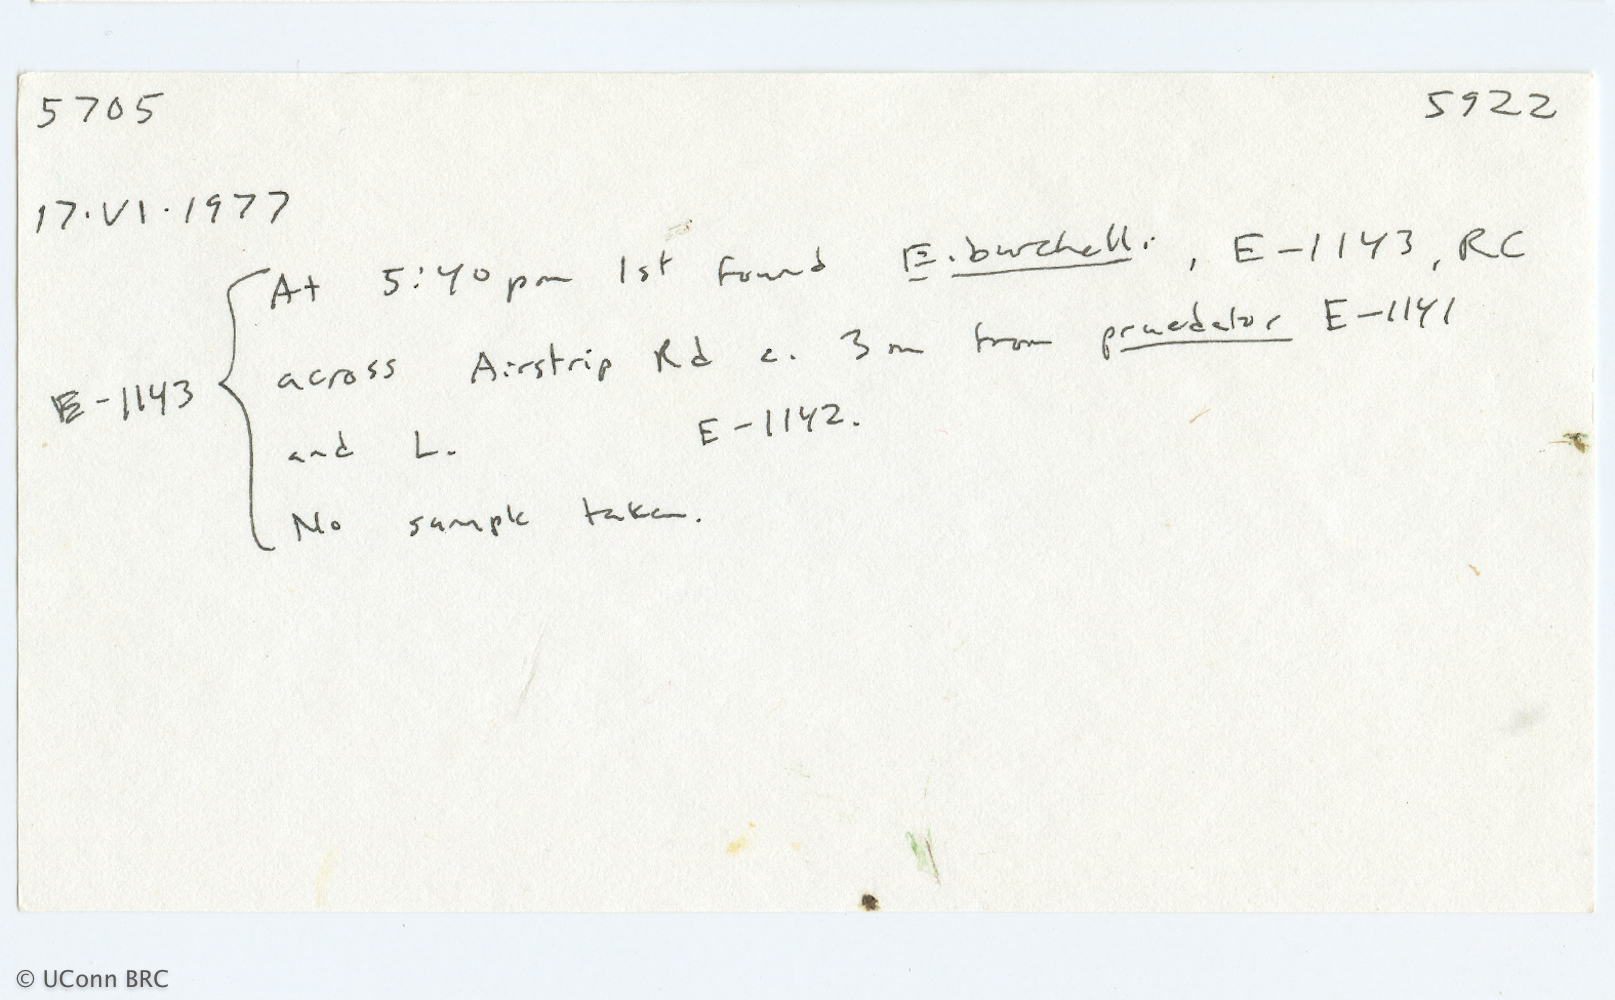 5705 5922
17.VI.1977
At 5:40 pm 1st found E. burchelli, E-1143, RC
across Airstrip Rd c. 3m from praedator E-1141
E-1143
and L. E-1142.
No sample taken.
© UConn BRC